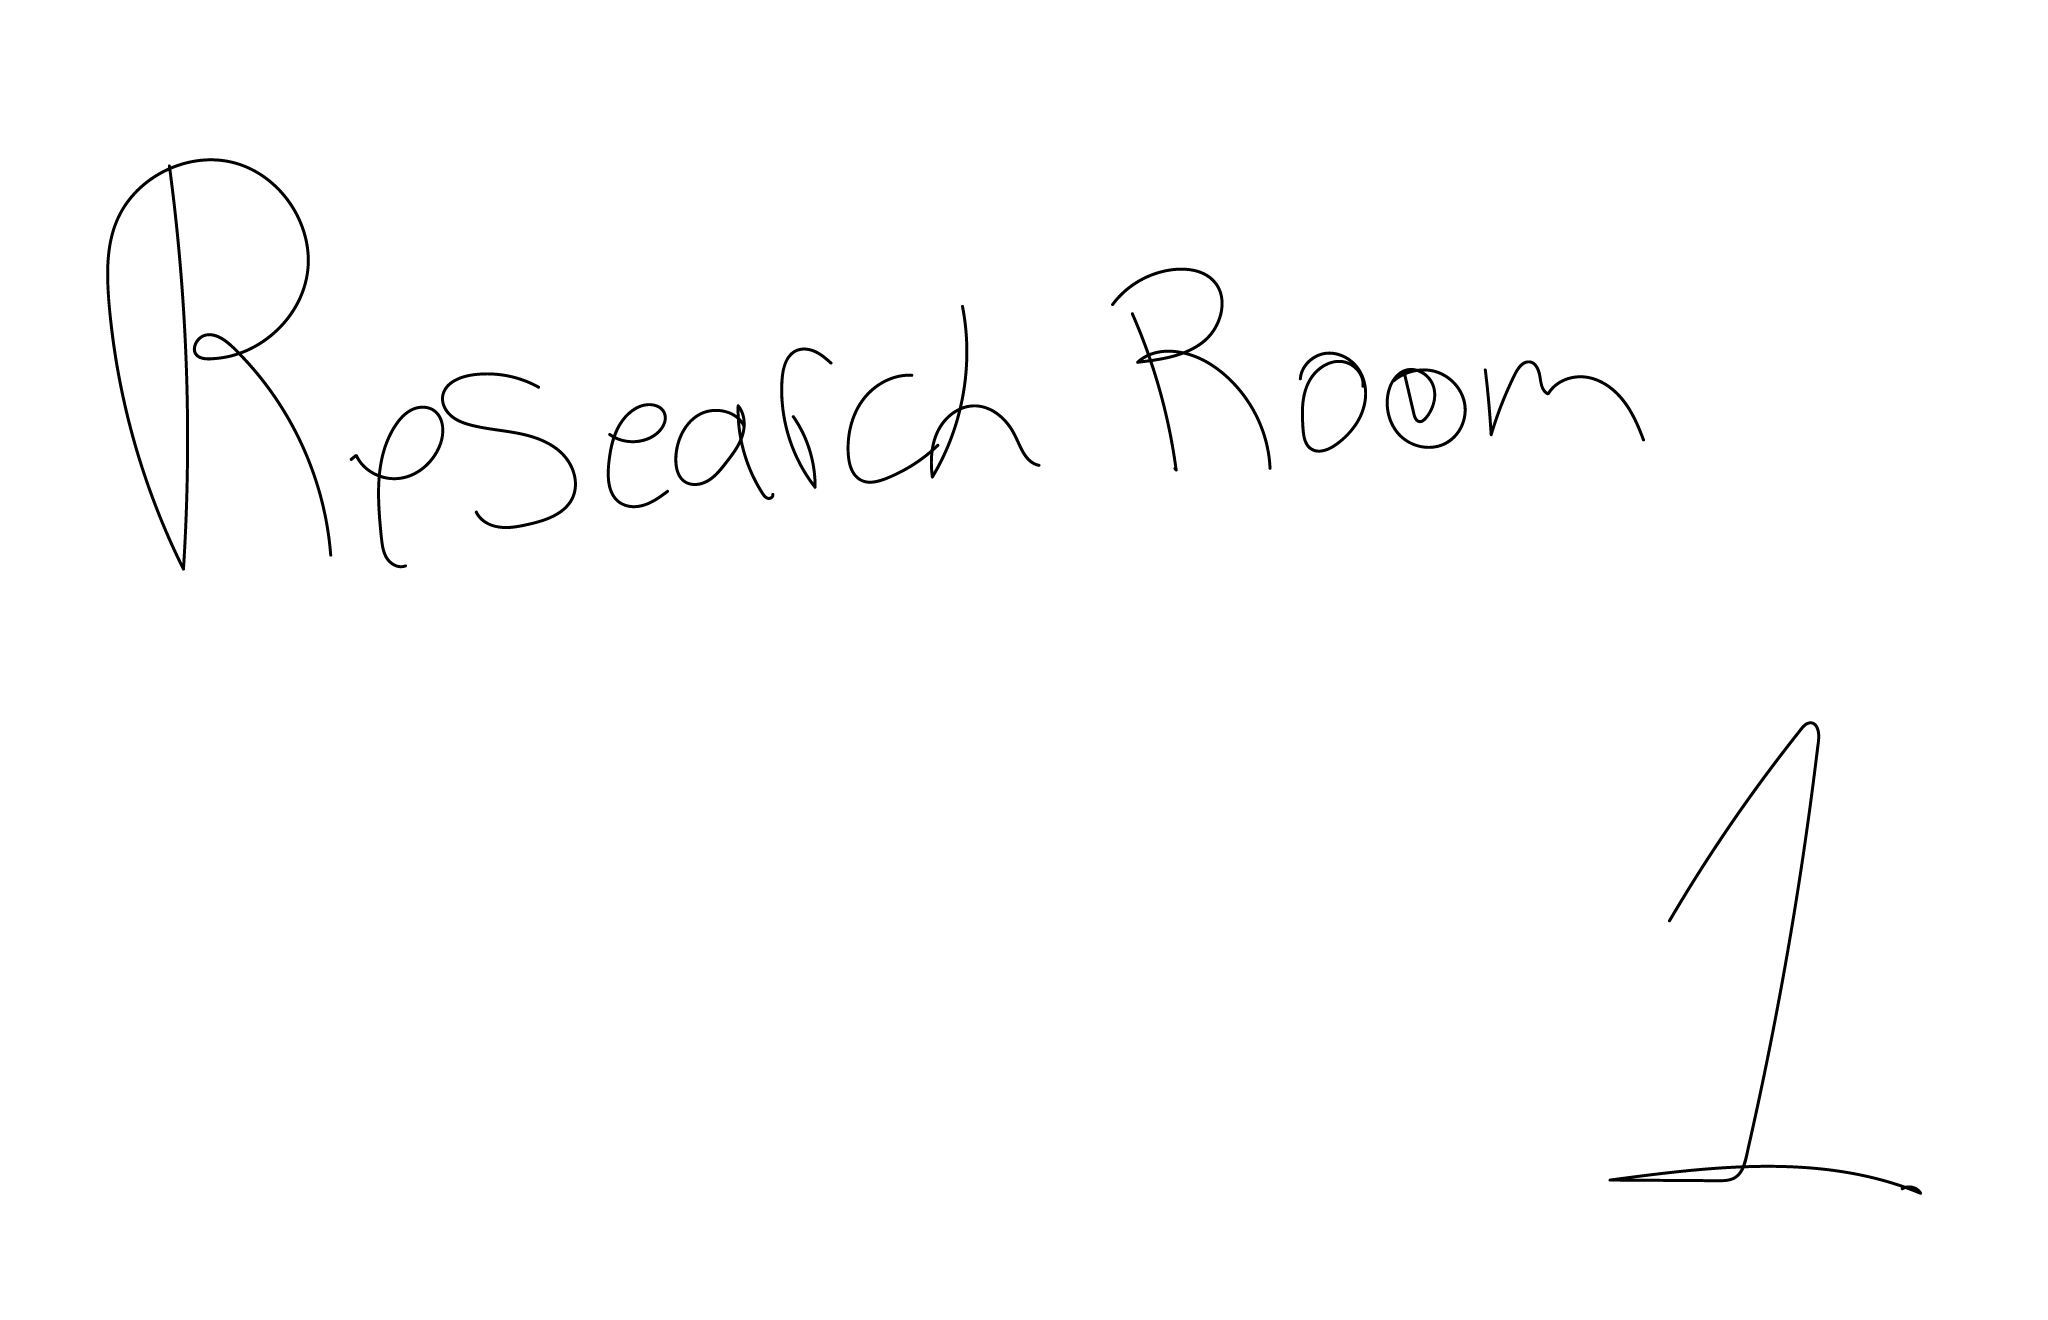 Research Room
1